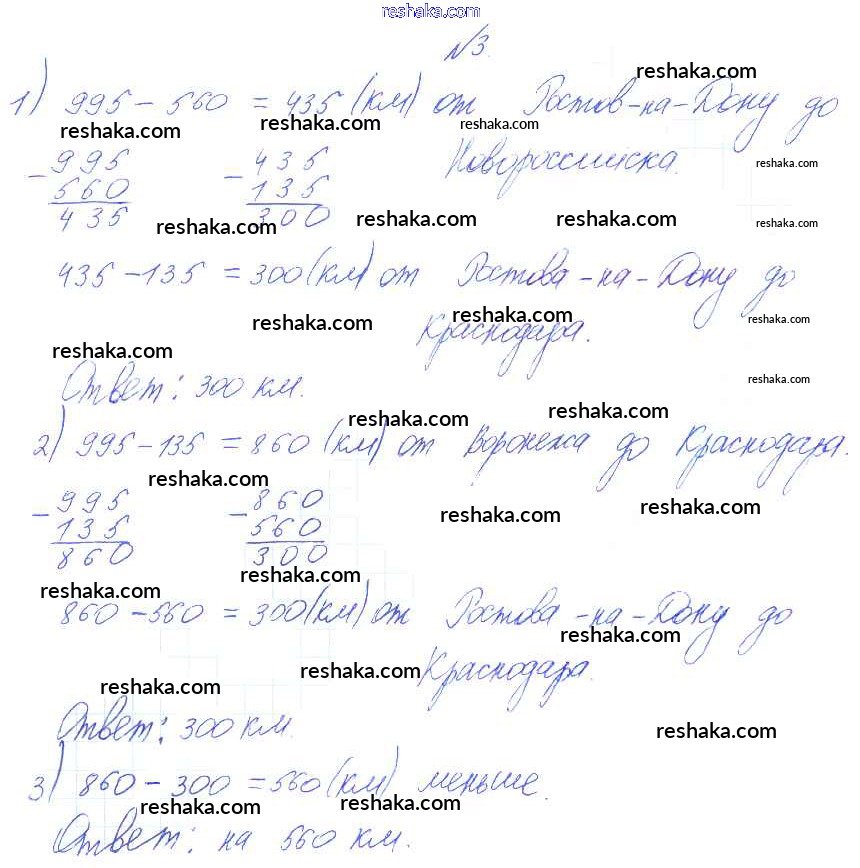 reshaka.com
№3.
reshaka.com
1) 995 - 560 = 435 (км) от Ростов-на-Дону до
reshaka.com reshaka.com reshaka.com
Новороссийска.
- 995 - 435
560 135
435 300
reshaka.com
reshaka.com reshaka.com reshaka.com reshaka.com
435 - 135 = 300 (км) от Ростова-на-Дону до
reshaka.com reshaka.com reshaka.com
Краснодара.
reshaka.com
Ответ: 300 км.
reshaka.com
reshaka.com reshaka.com
2) 995 - 135 = 860 (км) от Воронежа до Краснодара.
reshaka.com
- 995 - 860
135 560
860 300
reshaka.com reshaka.com
reshaka.com reshaka.com
860 - 560 = 300 (км) от Ростова-на-Дону до
reshaka.com
Краснодара.
reshaka.com reshaka.com
Ответ: 300 км.
reshaka.com
3) 860 - 300 = 560 (км) меньше.
reshaka.com reshaka.com
Ответ: на 560 км.